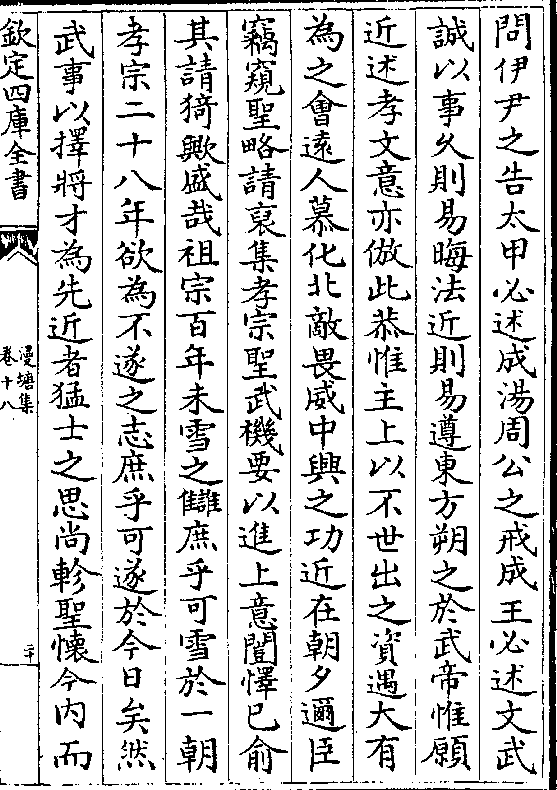 問伊尹之告太甲必述成湯周公之戒成王必述文武
誠以事久則易晦法近則易遵東方朔之於武帝惟願
近述孝文意亦倣此恭惟主上以不世出之資遇大有
為之會遠人慕化北敵畏威中興之功近在朝夕邇臣
竊窺聖略請裒集孝宗聖武機要以進上意闓懌已俞
其請猗歟盛哉祖宗百年未雪之讎庶乎可雪於一朝
孝宗二十八年欲為不遂之志庶乎可遂於今日矣然
武事以擇將才為先近者猛士之思尚軫聖懷今内而
欽定四庫全書
漫塘集
卷十八